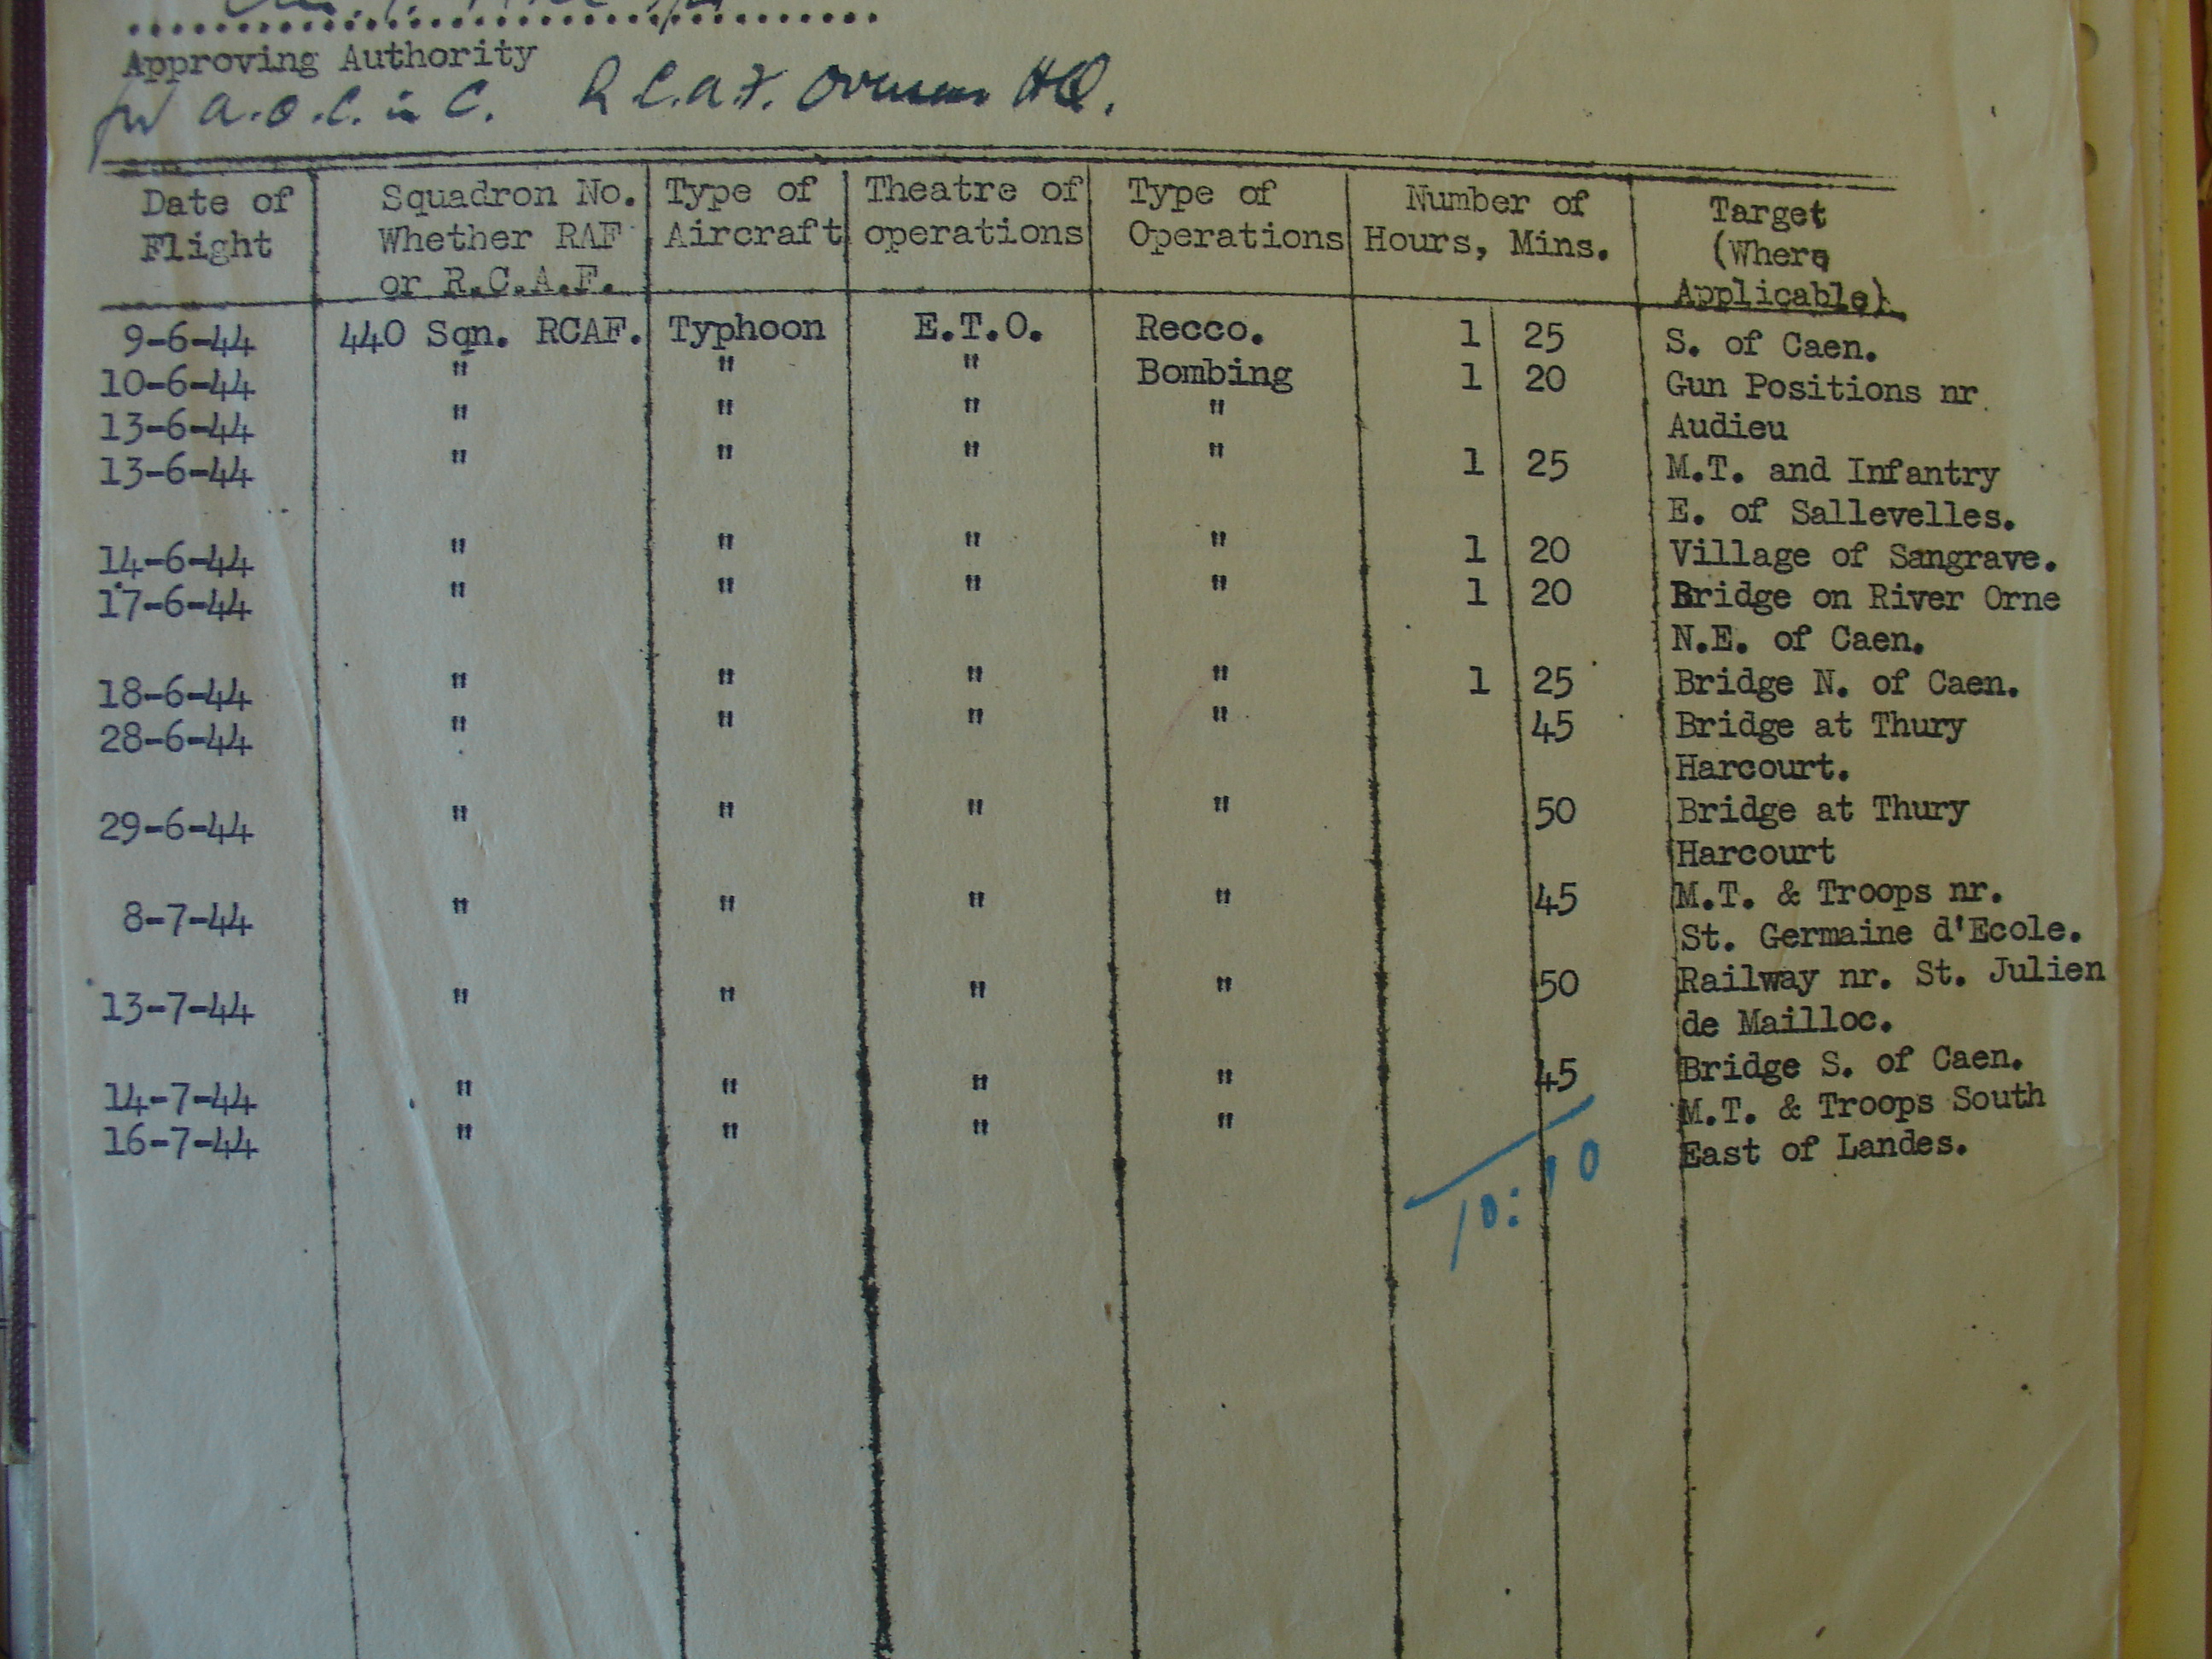 Approving Authority
for A.O.C. in C. R.C.A.F. Overseas HQ.
Date of Flight Squadron No. Whether RAF or R.C.A.F. Type of Aircraft Theatre of operations Type of Operations Number of Hours, Mins. Target (Where Applicable)
9-6-44 440 Sqn. RCAF. Typhoon E.T.O. Recco. 1 25 S. of Caen.
10-6-44 " " " Bombing 1 20 Gun Positions nr
13-6-44 " " " " Audieu
13-6-44 " " " " 1 25 M.T. and Infantry
E. of Sallevelles.
14-6-44 " " " " 1 20 Village of Sangrave.
17-6-44 " " " " 1 20 Bridge on River Orne
N.E. of Caen.
18-6-44 " " " " 1 25 Bridge N. of Caen.
28-6-44 " " " " 45 Bridge at Thury
Harcourt.
29-6-44 " " " " 50 Bridge at Thury
Harcourt
8-7-44 " " " " 45 M.T. & Troops nr.
St. Germaine d'Ecole.
13-7-44 " " " " 50 Railway nr. St. Julien
de Mailloc.
14-7-44 " " " " 45 Bridge S. of Caen.
16-7-44 " " " " M.T. & Troops South
East of Landes.
10:10